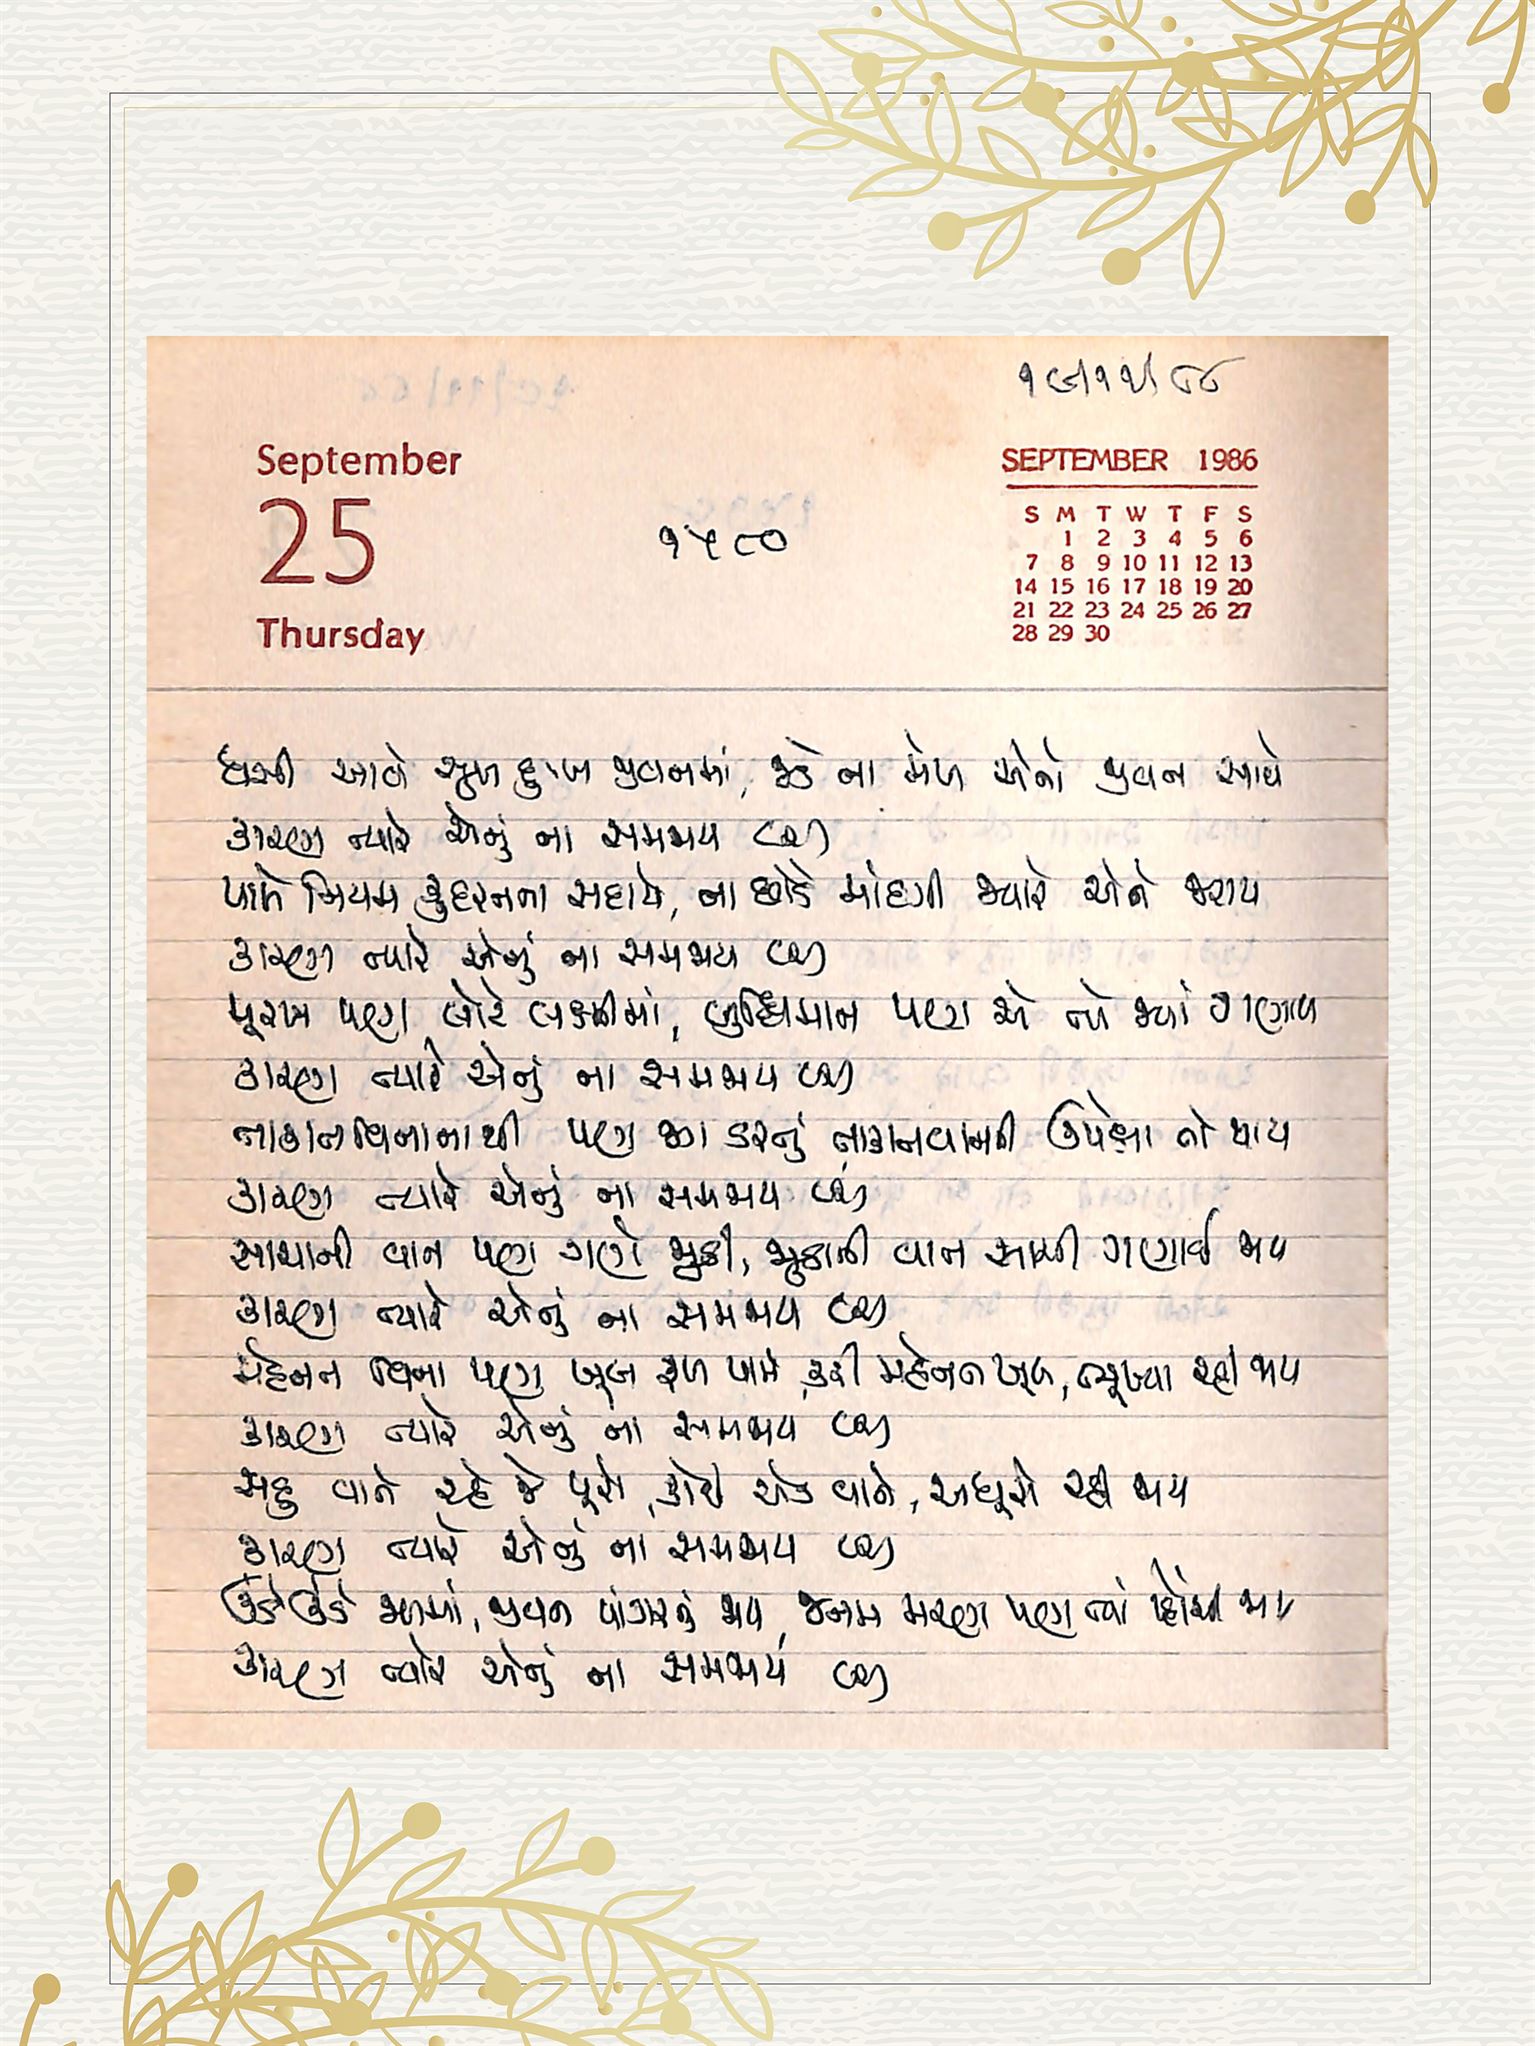 ૧૯/૧૧/૮૮
September
25
Thursday
૧૫૮૦
SEPTEMBER 1986
S M T W T F S
1 2 3 4 5 6
7 8 9 10 11 12 13
14 15 16 17 18 19 20
21 22 23 24 25 26 27
28 29 30
ધસી આવે સુખ દુઃખ જીવનમાં, જડે ના મેળ એનો જીવન સાથે
કારણ ત્યારે એનું ના સમજાય (૨)
પાળે નિયમ કુદરતના સદાયે, ના છોડે માંદગી જ્યારે એને જરાય
કારણ ત્યારે એનું ના સમજાય (૨)
મૂરખ પણ લોટે લક્ષ્મીમાં, બુદ્ધિમાન પણ એ તો જ્યાં ગણાય
કારણ ત્યારે એનું ના સમજાય (૨)
તાકાત વિનાનાથી પણ તાકાતવાનની ઉપેક્ષા તો થાય
કારણ ત્યારે એનું ના સમજાય (૨)
સાચાની વાત પણ ગણાયે જૂઠી, જૂઠાની વાત સાચી ગણાઈ જાય
કારણ ત્યારે એનું ના સમજાય (૨)
મહેનત વિના પણ ખૂબ ફળ પામે, કરી મહેનત ખૂબ, ભૂખ્યા રહી જાય
કારણ ત્યારે એનું ના સમજાય (૨)
સહુ વાતે રહે જે પૂરો, કોઈ એક વાતે, અધૂરો રહી જાય
કારણ ત્યારે એનું ના સમજાય (૨)
ઊંડે ઊંડે જળમાં, જીવન પાંગરતું જાય, જનમ મરણ પણ ત્યાં જાય
કારણ ત્યારે એનું ના સમજાય (૨)